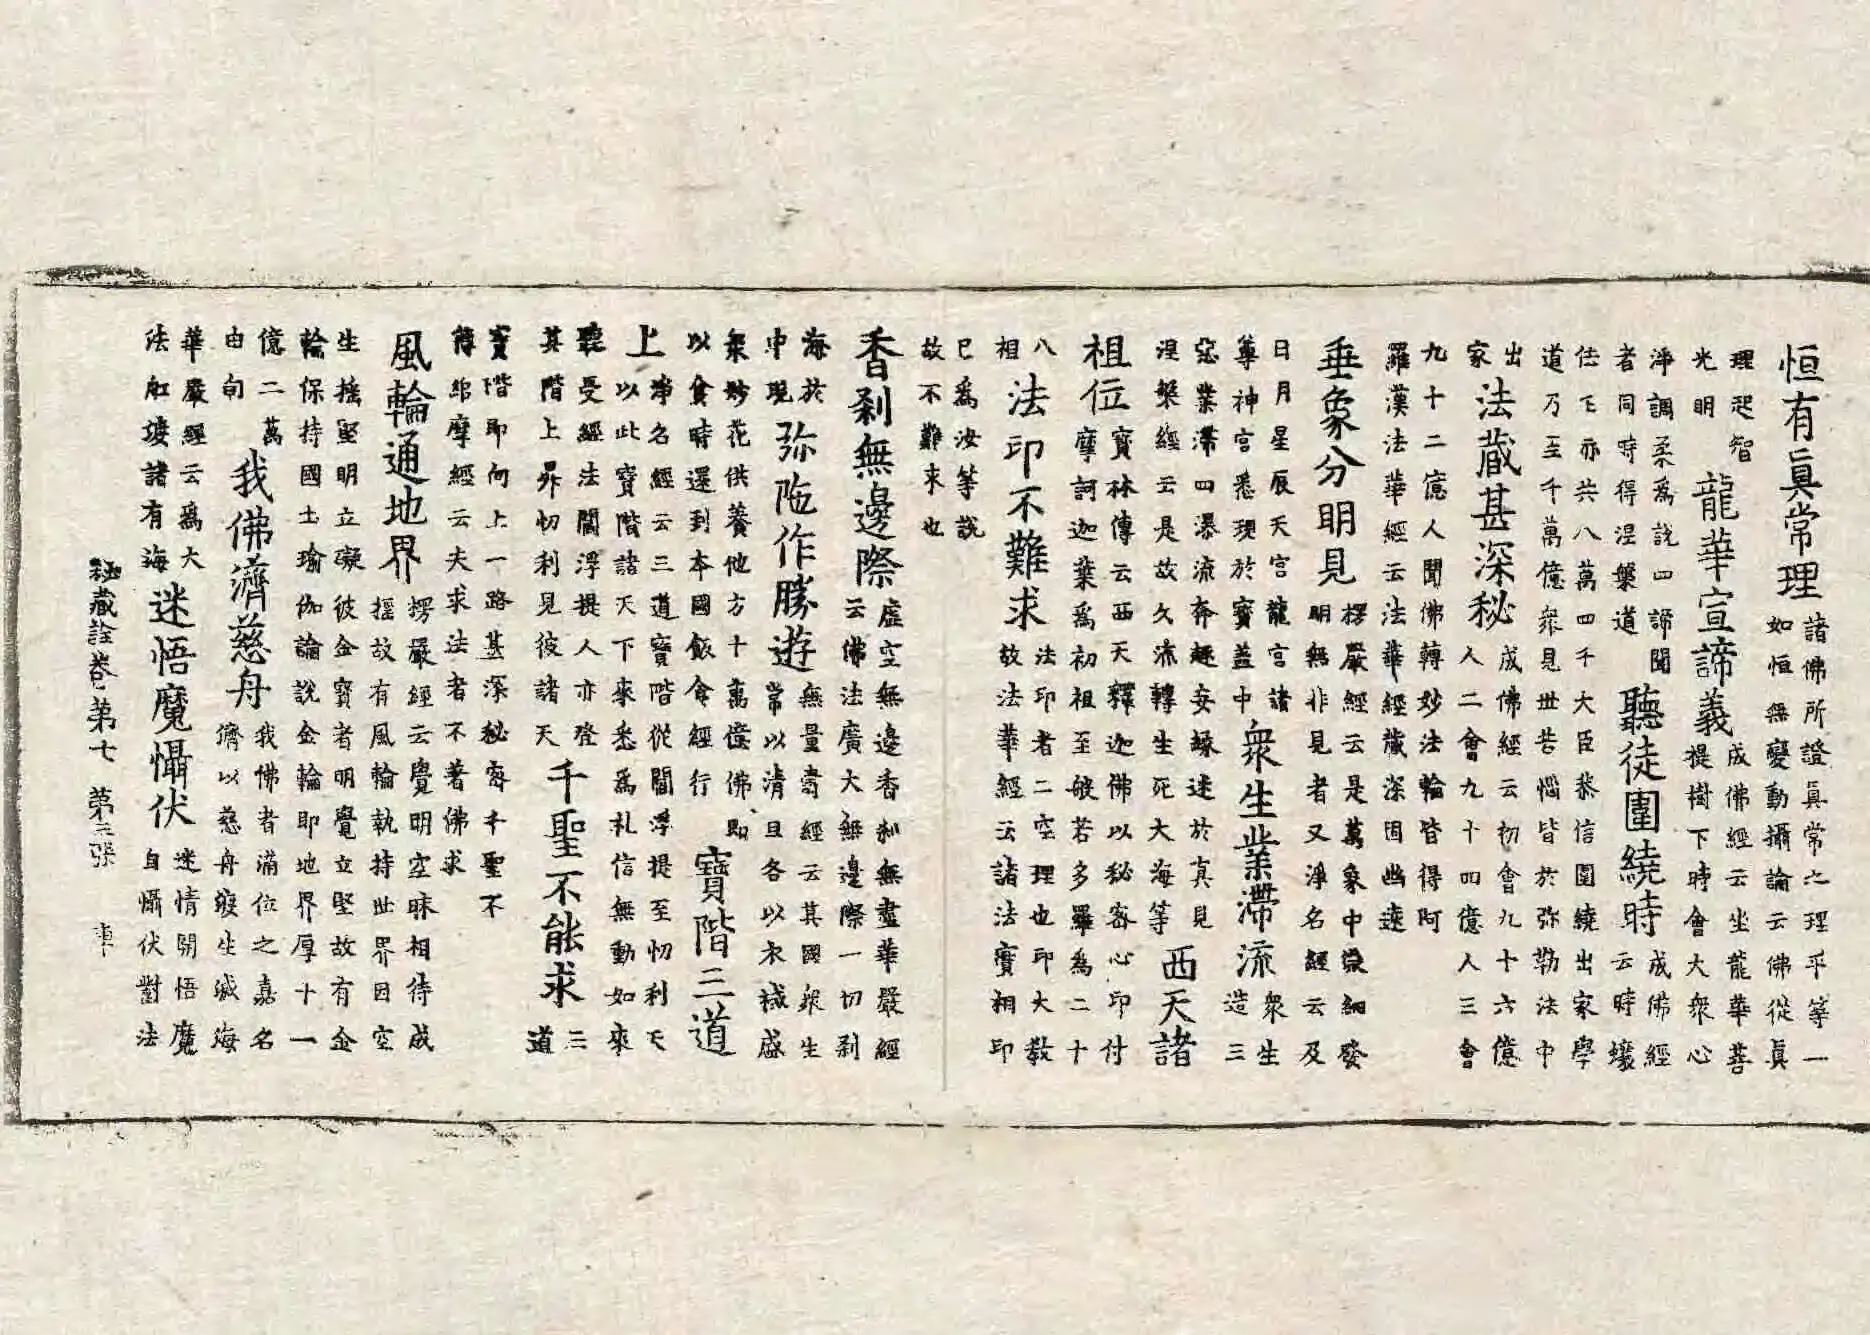 恒有眞常理諸佛所證眞常之理平等一如恒無變動攝論云佛從眞
理起智光明龍華宣諦義成佛經云坐龍華菩提樹下時會大衆心
淨調柔爲說四諦聞者同時得涅槃道聽徒圍繞時成佛經云時蠰
佉王亦共八萬四千大臣恭信圍繞出家學道乃至千萬億衆見世苦惱皆於弥勒法中
出家法藏甚深秘成佛經云初會九十六億人二會九十四億人三會
九十二億人聞佛轉妙法輪皆得阿羅漢法華經云法華經藏深固幽遠
垂象分明見楞嚴經云是萬象中微細發明無非見者又淨名經云及
日月星辰天宮龍宮諸尊神宮悉現於寶蓋中衆生業滯流衆生造三
惡業滯四瀑流奔趣妄緣迷於真見涅槃經云是故久流轉生死大海等西天諸
祖位寶林傳云西天釋迦佛以秘密心印付摩訶迦葉爲初祖至般若多羅爲二十
八相法印不難求法印者二空理也印大教故法華經云諸法實相印
已爲汝等說故不難求也
香刹無邊際虛空無邊香刹無盡華嚴經云佛法廣大無邊際一切刹
海於中現弥陁作勝遊無量壽經云其國衆生常以清旦各以衣裓盛
衆妙花供養他方十萬億佛即以食時還到本國飯食經行寶階三道
上淨名經云三道寶階從閻浮提至忉利天以此寶階諸天下來悉爲礼信無動如來
聽受經法閻浮提人亦登其階上昇忉利見彼諸天千聖不能求三道
寶階即向上一路甚深秘密千聖不得維摩經云夫求法者不著佛求
風輪通地界楞嚴經云覺明空昧相待成揺故有風輪執持世界因空
生揺堅明立礙彼金寶者明覺立堅故有金輪保持國土瑜伽論說金輪即地界厚十一
億二萬由旬我佛濟慈舟我佛者滿位之嘉名濟以慈舟渡生滅海
華嚴經云爲大法舡渡諸有海迷悟魔懾伏迷情開悟魔自懾伏對法
秘藏詮卷第七 第三張 車